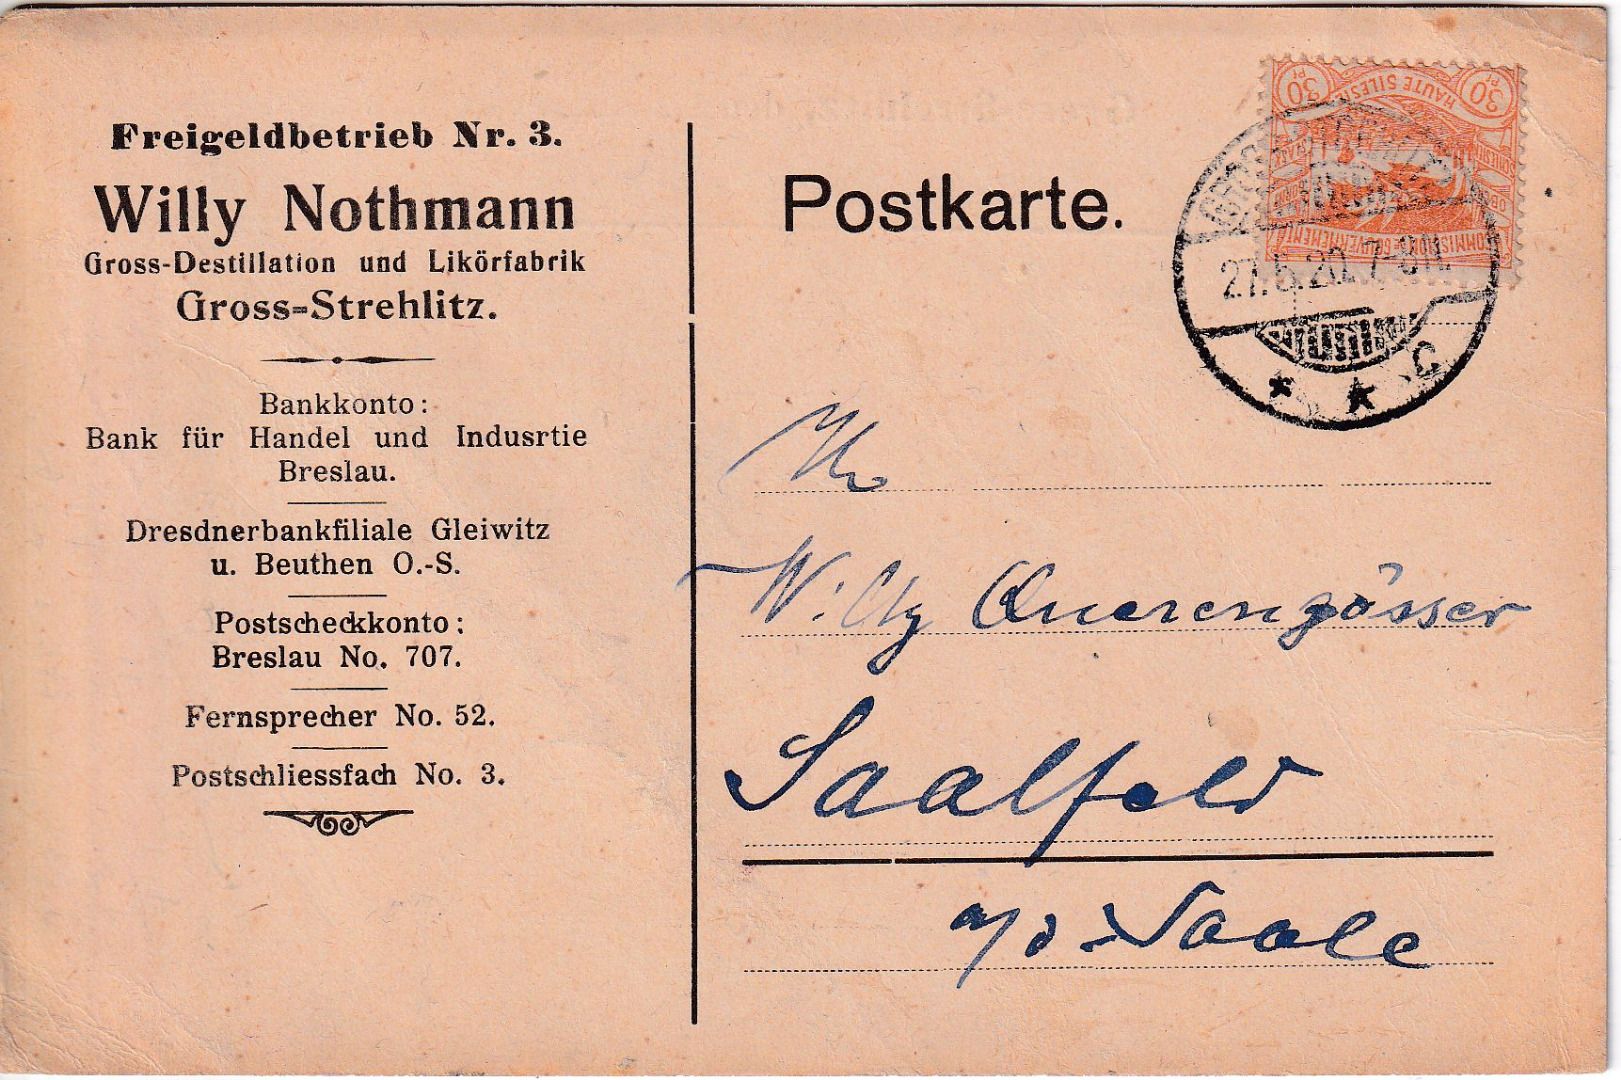 Freigeldbetrieb Nr. 3.
Willy Nothmann
Gross-Destillation und Likörfabrik
Gross-Strehlitz.
Bankkonto:
Bank für Handel und Indusrtie
Breslau.
Dresdnerbankfiliale Gleiwitz
u. Beuthen O.-S.
Postscheckkonto:
Breslau No. 707.
Fernsprecher No. 52.
Postschliessfach No. 3.
Postkarte.
30 Pf HAUTE SILESIE 30 Pf
COMMISSION DE GOUVERNEMENT
27.5.20. 7-8N.
* * c
Willy Querengässer
Saalfeld
a/d. Saale